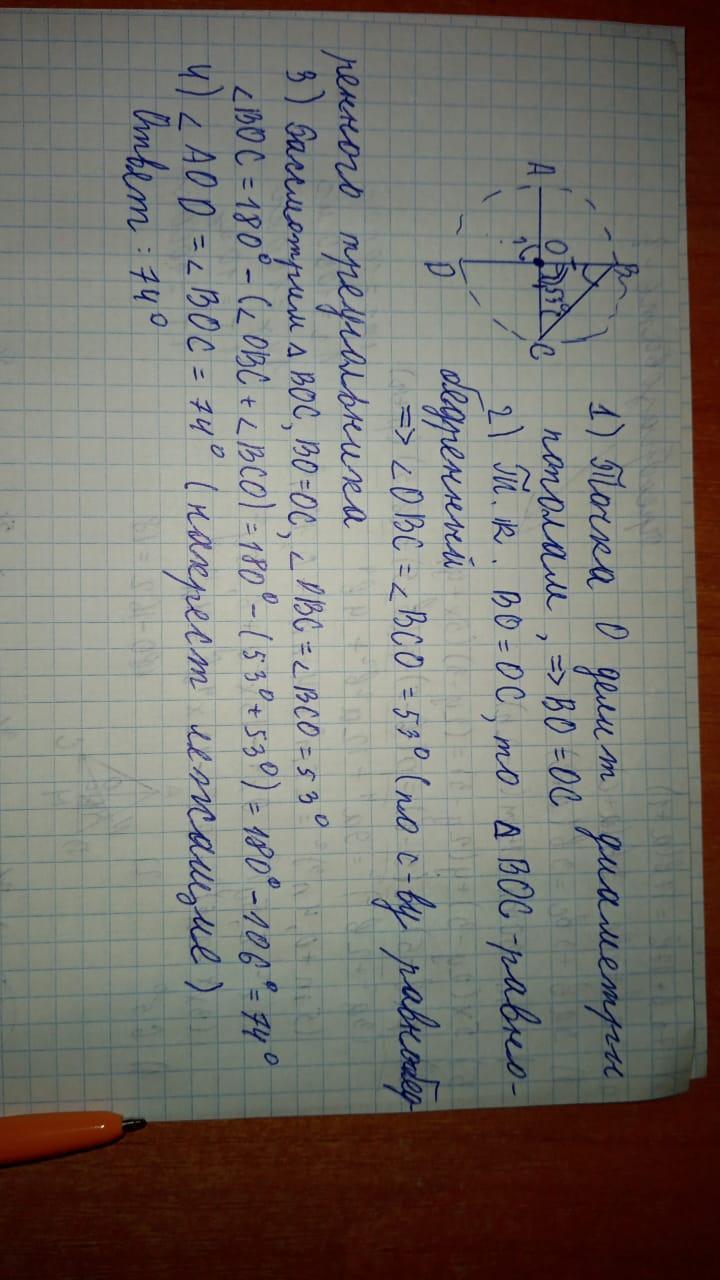 A
B
O
53°
C
D
1) Точка О делит диаметры
пополам, => BO=OC
2) Т.к. BO=OC, то △ BOC-равно-
бедренный
=> ∠OBC=∠BCO=53° (по с-ву равнобед-
ренного треугольника
3) Рассмотрим △ BOC, BO=OC, ∠OBC=∠BCO=53°
∠BOC=180°-(∠OBC+∠BCO)=180°-(53°+53°)=180°-106°=74°
4) ∠AOD=∠BOC=74° (накрест лежащие)
Ответ: 74°